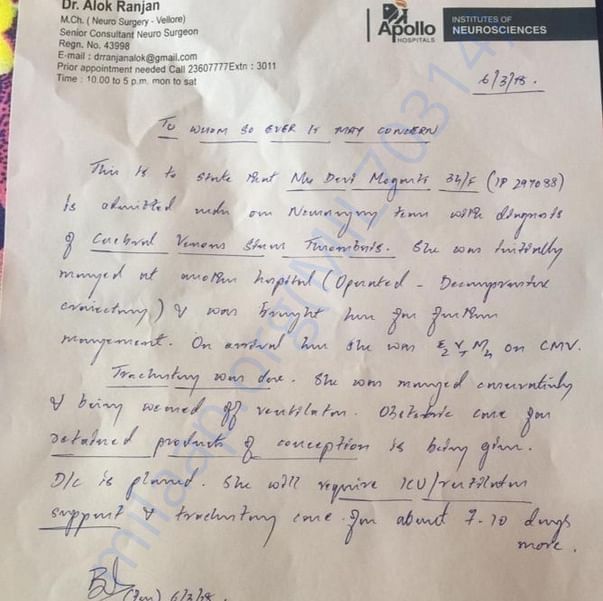 Dr. Alok Ranjan
M.Ch. ( Neuro Surgery - Vellore)
Senior Consultant Neuro Surgeon
Regn. No. 43998
E-mail : drranjanalok@gmail.com
Prior appointment needed Call 23607777Extn : 3011
Time : 10.00 to 5 p.m. mon to sat
Apollo
HOSPITALS
INSTITUTES OF
NEUROSCIENCES
6/3/18.
TO WHOM SO EVER IT MAY CONCERN
This is to state that Ms Devi Moganti 34/F (IP 297088)
is admitted under our Neurosurgery team with diagnosis
of Cerebral Venous Sinus Thrombosis. She was initially
managed at another hospital (Operated - Decompressive
craniectomy) & was brought here for further
management. On arrival here she was E2 VT M4 on CMV.
Tracheostomy was done. She was managed conservatively
& being weaned off ventilator. Obstetric care for
retained products of conception is being given.
D/C is planned. She will require ICU/ventilator
support & tracheostomy care for about 7-10 days
more.
6/3/18.
milaap.org